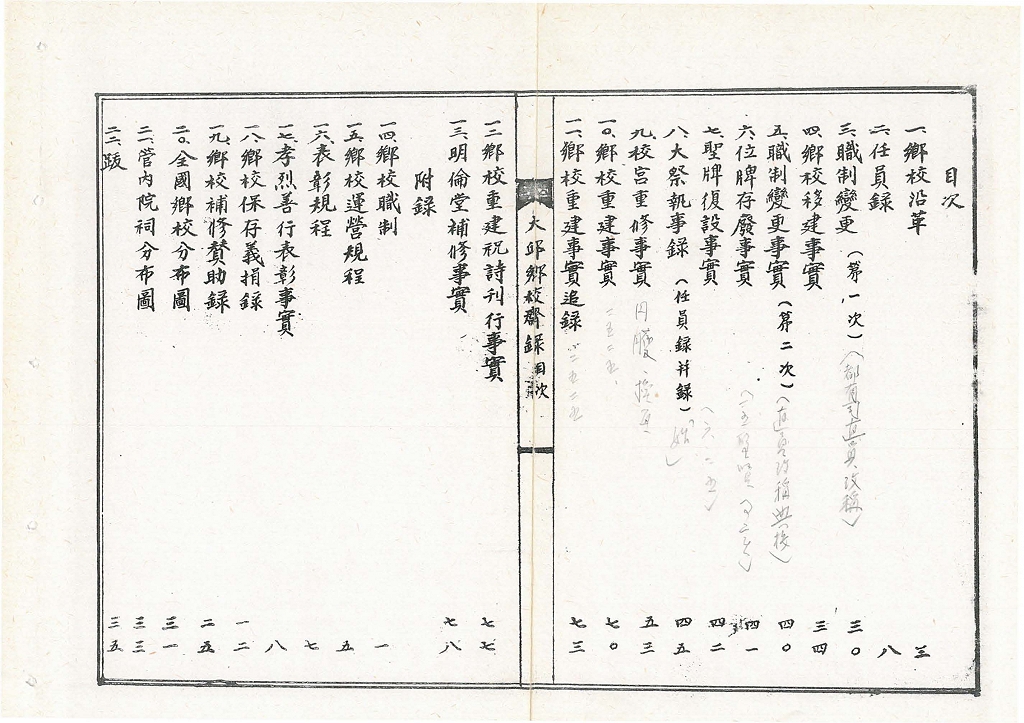 目次
一、鄕校沿革 三
二、任員錄 八
三、職制變更（第一次）（都有司直員改稱） 三〇
四、鄕校移建事實 三四
五、職制變更事實（第二次）（直員改稱典校） 四〇
六、位牌存廢事實 四一
七、聖牌復設事實 四二
八、大祭執事錄（任員錄幷錄） 四五
九、校宮重修事實 五三
一〇、鄕校重建事實 七〇
一一、鄕校重建事實追錄 七三
大邱鄕校齋錄 目次
一二、鄕校重建祝詩刊行事實 七七
一三、明倫堂補修事實 七八
附錄
一四、鄕校職制 一
一五、鄕校運營規程 五
一六、表彰規程 七
一七、孝烈善行表彰事實 八
一八、鄕校保存義捐錄 一二
一九、鄕校補修贊助錄 二五
二〇、全國鄕校分布圖 三一
二一、管內院祠分布圖 三三
二二、跋 三五